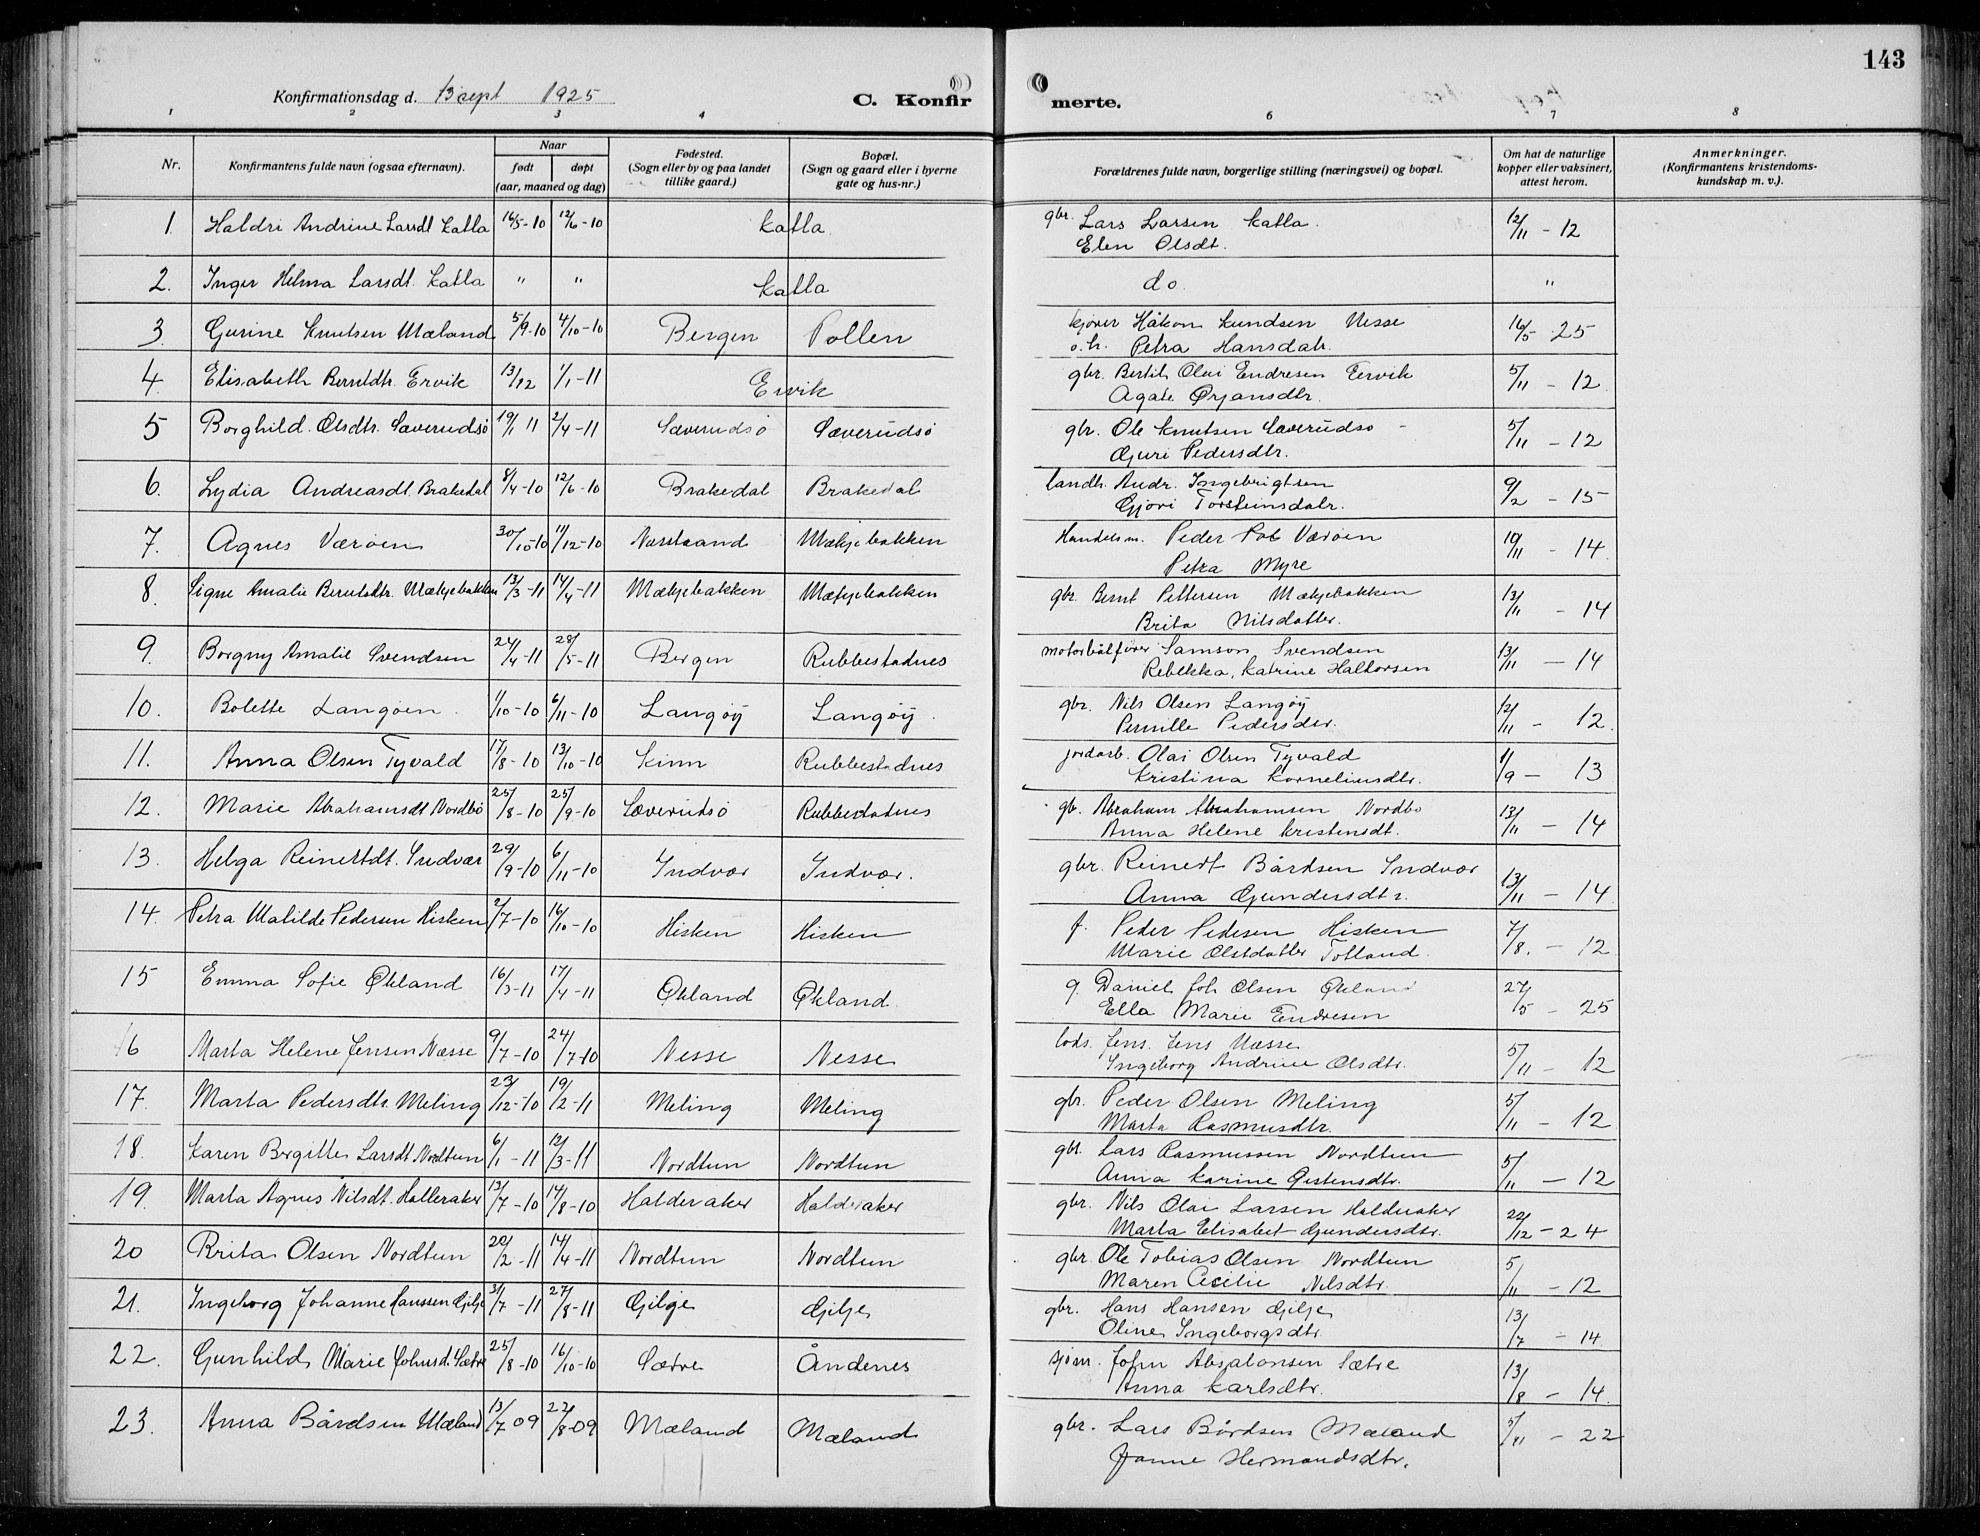 143
Konfirmationsdag d. 13 sept 1925
C. Konfirmerte.
1 2 3 4 5 6 7 8
Nr.
Konfirmantens fulde navn (ogsaa efternavn).
Naar
født
døpt
(aar, maaned og dag)
Fødested.
(Sogn eller by og paa landet
tillike gaard.)
Bopæl.
(Sogn og gaard eller i byerne
gate og hus-nr.)
Forældrenes fulde navn, borgerlige stilling (næringsvei) og bopæl.
Om hat de naturlige
kopper eller vaksinert,
attest herom.
Anmerkninger.
(Konfirmantens kristendoms-
kundskap m. v.).
1. Haldri Andrine Larsdt Katla 16/5-10 12/6-10 Katla gbr. Lars Larsen Katla. 12/11 - 12
Elen Olsdt.
2. Inger Helma Larsdt. Katla " " Katla do. "
3. Gurine Knutsen Mæland 5/9-10 4/10-10 Bergen Pollen kjører Håkon Kundsen Nesse 16/5 25
o.h. Petra Hansdatr.
4. Elisabeth Berntdtr. Ervik 13/12 1/1-11 Ervik gbr. Bertil Olai Endresen Eervik 5/11 - 12
Agate Ørjansdtr.
5 Borghild Olsdtr. Sæverudsö 19/1 11 2/4-11 Sæverudsö Sæverudsö gbr. Ole Knutsen Sæverudsö 5/11 - 12
Guri Pedersdtr.
6. Lydia Andreasdt. Brakedal 8/4-10 12/6-10 Brakedal Brakedal landh. Andr. Ingebrigtsen 9/2 - 15
Gjøri Torsteinsdatr.
7. Agnes Værøen 30/10-10 11/12-10 Nærstrand Mækjebakken Handelsm. Peder Værøen 19/11 - 14
Petra Myre
8. Signe Amalie Berntsdtr. Mækjebakken 13/3-11 14/4-11 Mækjebakken Mækjebakken gbr. Bernt Pettersen Mækjebakken 13/11 - 14
Brita Nilsdatter.
9. Borgny Amalie Svendsen 24/4-11 28/5-11 Bergen Rubbestadnes motorbåtfører Samson Svendsen 13/11 - 14
Rebekka, Katrine Haltorsen
10. Bolette Langøen. 1/10-10 6/11-10 Langøy Langøy. gbr. Nils Olsen Langøy 12/11 - 12.
Pernille Pedersdtr.
11. Anna Olsen Tyvald 17/8-10 13/10-10 Kinn Rubbestadnes jordarb. Olai Olsen Tyvald 1/9 - 13
Kristina Korneliusdtr.
12. Marie Abrahamsdt Nordbö 25/8-10 25/9-10 Sæverudsö Rubbestadnes gb. Abraham Abrahamsen Nordbö 13/11 - 14
Anna Helene Kristensdt.
13. Helga Reinertdt. Indvær 29/9-10 6/11-10 Indvær Indvær. gbr. Reinert Bårdsen Indvær 13/11 - 14.
Anna Gundersdtr.
14. Petra Matilde Pedersen Hisken 2/7-10 16/10-10 Hisken Hisken f. Peder Pedersen Hisken 7/8. - 12
Marie Olsdatter Totland.
15 Emma Sofie Økland 16/3-11 17/4-11 Økland Økland. g. Daniel Joh. Olsen Økland 27/5 - 25
Ella Marie Endresen
16 Marta Helene Jensen Næsse 9/7-10 24/7-10 Nesse Nesse lods. Jens Jens Næsse 5/11 - 12
Ingeborg Andrine Olsdtr.
17. Marta Pedersdtr. Meling 23/12-10 19/2-11 Meling Meling gbr. Peder Olsen Meling 5/11 - 12
Marta Rasmusdtr.
18. Karen Bergitte Larsdt Nordtun 6/1-11 12/3-11 Nordtun Nordtun gbr. Lars Rasmussen Nordtun 5/11 - 12
Anna Karine Gestensdtr.
19. Marta Agnes Nilsdt. Halleraker 13/7-10 14/8-10 Halderaker Halderaker gbr. Nils Olai Larsen Halderaker 22/12 - 24
Marta Elisabet Gundersdtr.
20 Brita Olsen Nordtun 20/2-11 14/4-11 Nordtun Nordtun gbr. Ole Tobias Olsen Nordtun 5/11 - 12
Maren Cecilie Nilsdtr.
21. Ingeborg Johanne Hanssen Gilje 31/7-11 27/8-11 Gilje Gilje gbr. Hans Hansen Gilje 13/7 - 14
Oline Ingeborgsdtr.
22. Gunhild Marie Johnsd. Sætre 25/8-10 16/10-10 Sætre Åndenes sjøm. John Absalonsen Sætre 13/8 - 14.
Anna Karlsdtr.
23. Anna Bårdsen Mæland 13/7 09 22/8-09 Mæland Mæland gbr. Lars Bårdsen Mæland 5/11 - 22
Janne Hermandsdtr.